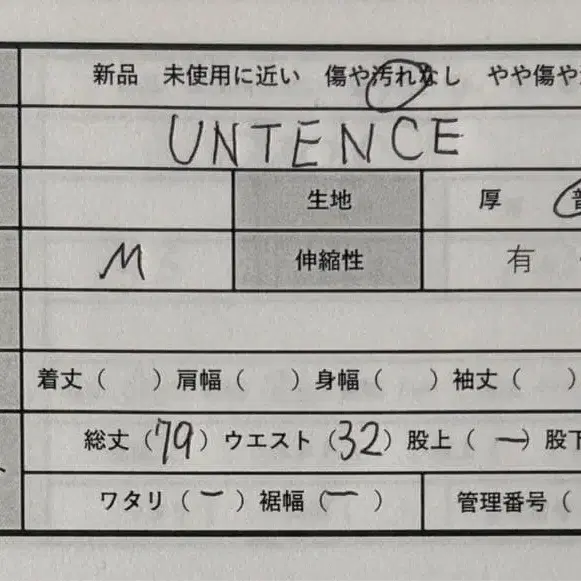 新品 未使用に近い 傷や汚れなし やや傷や
UNTENCE
生地 厚
M 伸縮性 有
着丈 ( ) 肩幅 ( ) 身幅 ( ) 袖丈 ( )
総丈 (79) ウエスト (32) 股上 (ー) 股下
ワタリ (ー) 裾幅 (ー) 管理番号 (